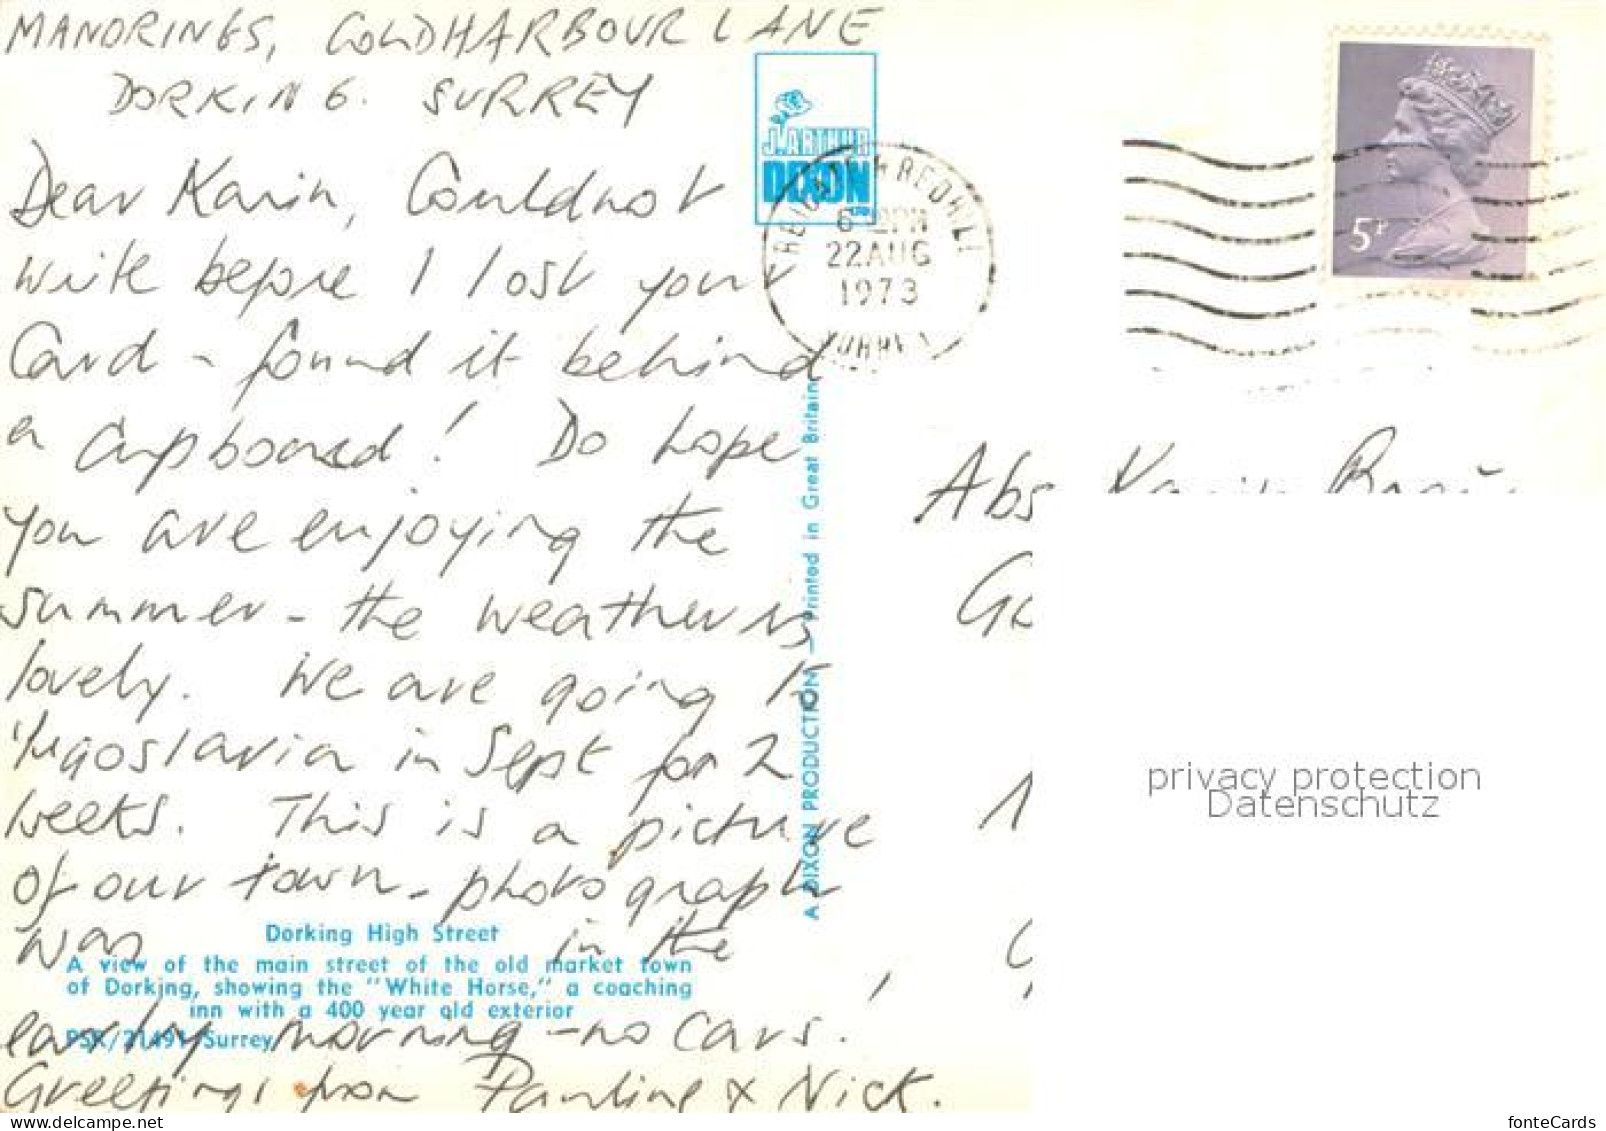 MANORINGS, COLDHARBOUR LANE
DORKING. SURREY
Dear Karin, Couldnot
write before I lost your
Card - found it behind
a cupboard! Do hope
you are enjoying the
summer - the weather is
lovely. We are going to
Yugoslavia in Sept for 2
weeks. This is a picture
of our town - photograph
was in the
early morning - no cars.
Greetings from Pauline & Nick.
Dorking High Street
A view of the main street of the old market town
of Dorking, showing the "White Horse," a coaching
inn with a 400 year old exterior
PSK/21491 Surrey
J. ARTHUR
DIXON
LTD
A DIXON PRODUCTION — Printed in Great Britain
REIGATE & REDHILL
PM
22 AUG
1973
SURREY
5P
Abs Karin
privacy protection
Datenschutz
fonteCards
www.delcampe.net